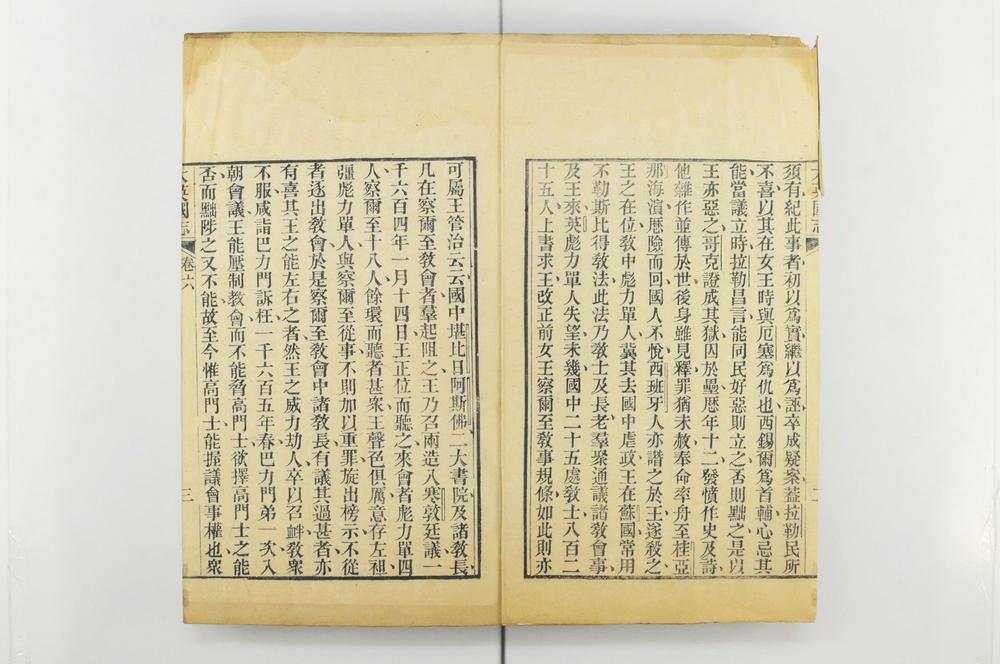 須有紀此事者初以爲實繼以爲誣卒成疑案蓋拉勒民所
不喜以其在女王時與厄塞爲仇也西錫爾爲首輔心忌其
能當議立時拉勒昌言能同民好惡則立之否則黜之是以
王亦惡之哥克證成其獄囚於壘歷年十二發憤作史及詩
他雜作並傳於世後身雖見釋罪猶未赦奉命率舟至桂亞
那海濱歷險而回國人不悅西班牙人亦譖之於王遂殺之
王之在位敎中彪力單人冀其去國中虐政王在蘇國常用
不勒斯比得敎法此法乃敎士及長老羣聚通議諸敎會事
及王來英彪力單人失望未幾國中二十五處敎士八百二
十五人上書求王改正前女王察爾至敎事規條如此則亦
可屬王管治云云國中堪比日阿斯佛二大書院及諸敎長
凡在察爾至敎會者羣起阻之王乃召兩造入寒敦廷議一
千六百四年一月十四日王正位而聽之來會者彪力單四
人察爾至十八人餘環而聽者甚衆王聲色俱厲意存左袒
彊彪力單人與察爾至從事不則加以重罪旋出榜示不從
者逐出敎會於是察爾至敎會中諸敎長有議其過甚者亦
有喜其王之能左右之者然王之威力劫人卒以召衅敎衆
不服咸詣巴力門訴枉一千六百五年春巴力門弟一次入
朝會議王能壓制敎會而不能脅高門士欲擇高門士之能
否而黜陟之又不能故至今惟高門士能握議會事權也衆
大英國志
卷六
三